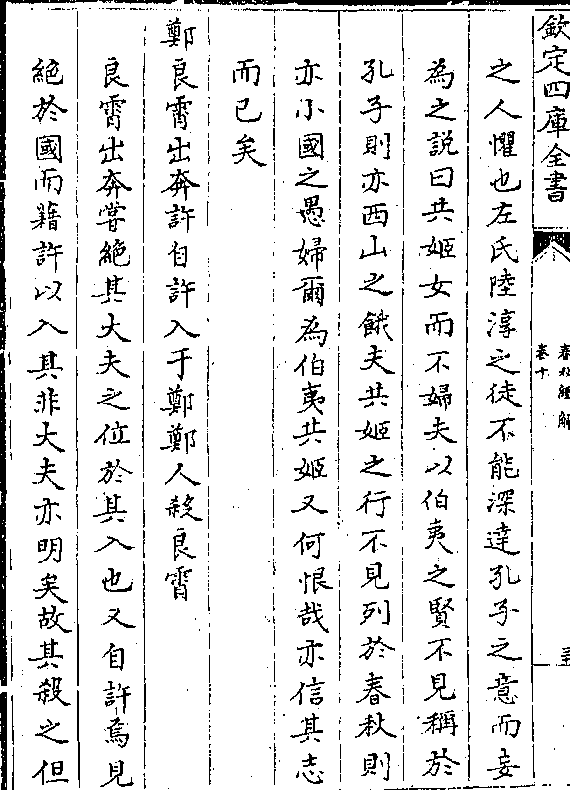 欽定四庫全書
春秋經解
卷十
之人懼也左氏陸淳之徒不能深達孔子之意而妄
為之說曰共姬女而不婦夫以伯夷之賢不見稱於
孔子則亦西山之餓夫共姬之行不見列於春秋則
亦小國之愚婦爾為伯夷共姬又何恨哉亦信其志
而已矣
鄭良霄出奔許自許入于鄭鄭人殺良霄
良霄出奔嘗絕其大夫之位於其入也又自許焉見
絕於國而藉許以入其非大夫亦明矣故其殺之但